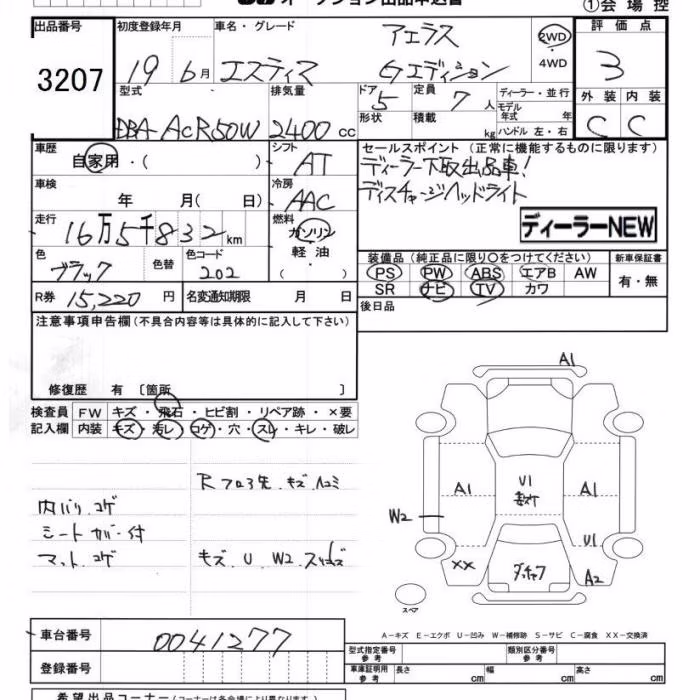 オークション出品申込書
①会場控
出品番号
3207
初度登録年月
19 6月
車名・グレード
アエラス
エスティマ Gエディション
2WD
・
4WD
評価点
3
外装 内装
C C
型式
DBA-ACR50W
排気量
2400 cc
ドア
5
定員
7人
形状
積載
kg
ディーラー・並行
モデル年式 年
ハンドル 左・右
車歴
自家用・( )
シフト
AT
車検
年 月( 日)
冷房
AAC
走行
16万5千832km
燃料
ガソリン
・
軽油
( )
色
ブラック
色替
色コード
202
R券 15,220 円
名変通知期限 月 日
セールスポイント (正常に機能するものに限ります)
ディーラー下取出品車!
ディスチャージヘッドライト
ディーラーNEW
装備品 (純正品に限り○をつけてください)
PS PW ABS エアB AW
SR ナビ TV カワ
新車保証書
有・無
後日品
注意事項申告欄 (不具合内容等は具体的に記入して下さい)
修復歴 有 〔箇所 〕
検査員 FW キズ・飛石・ヒビ割・リペア跡・×要
記入欄 内装 キズ・汚レ・コゲ・穴・スレ・キレ・破レ
内バリ コゲ
シートカバー付
マット コゲ
キズ.U.W2.スリキズ
A1
A1
U1
A1
W2
U1
XX
A2
スペア
A-キズ E-エクボ U-凹み W-補修跡 S-サビ C-腐食 XX-交換済
車台番号 0041277
登録番号
型式指定番号 参考
類別区分番号 参考
車庫証明用 参考 長さ cm 幅 cm 高さ cm
希望出品コーナー (コーナーは各会場により異なります)